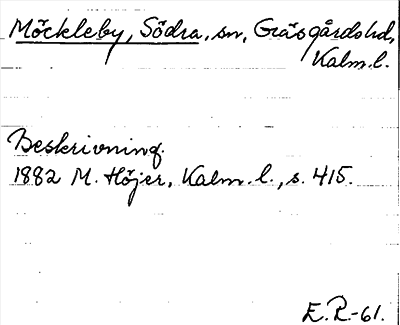 Möckleby, Södra, sn, Gräsgårds hd,
Kalm. l.
Beskrivning.
1882 M. Höjer, Kalm. l., s. 415.
E. R-61.